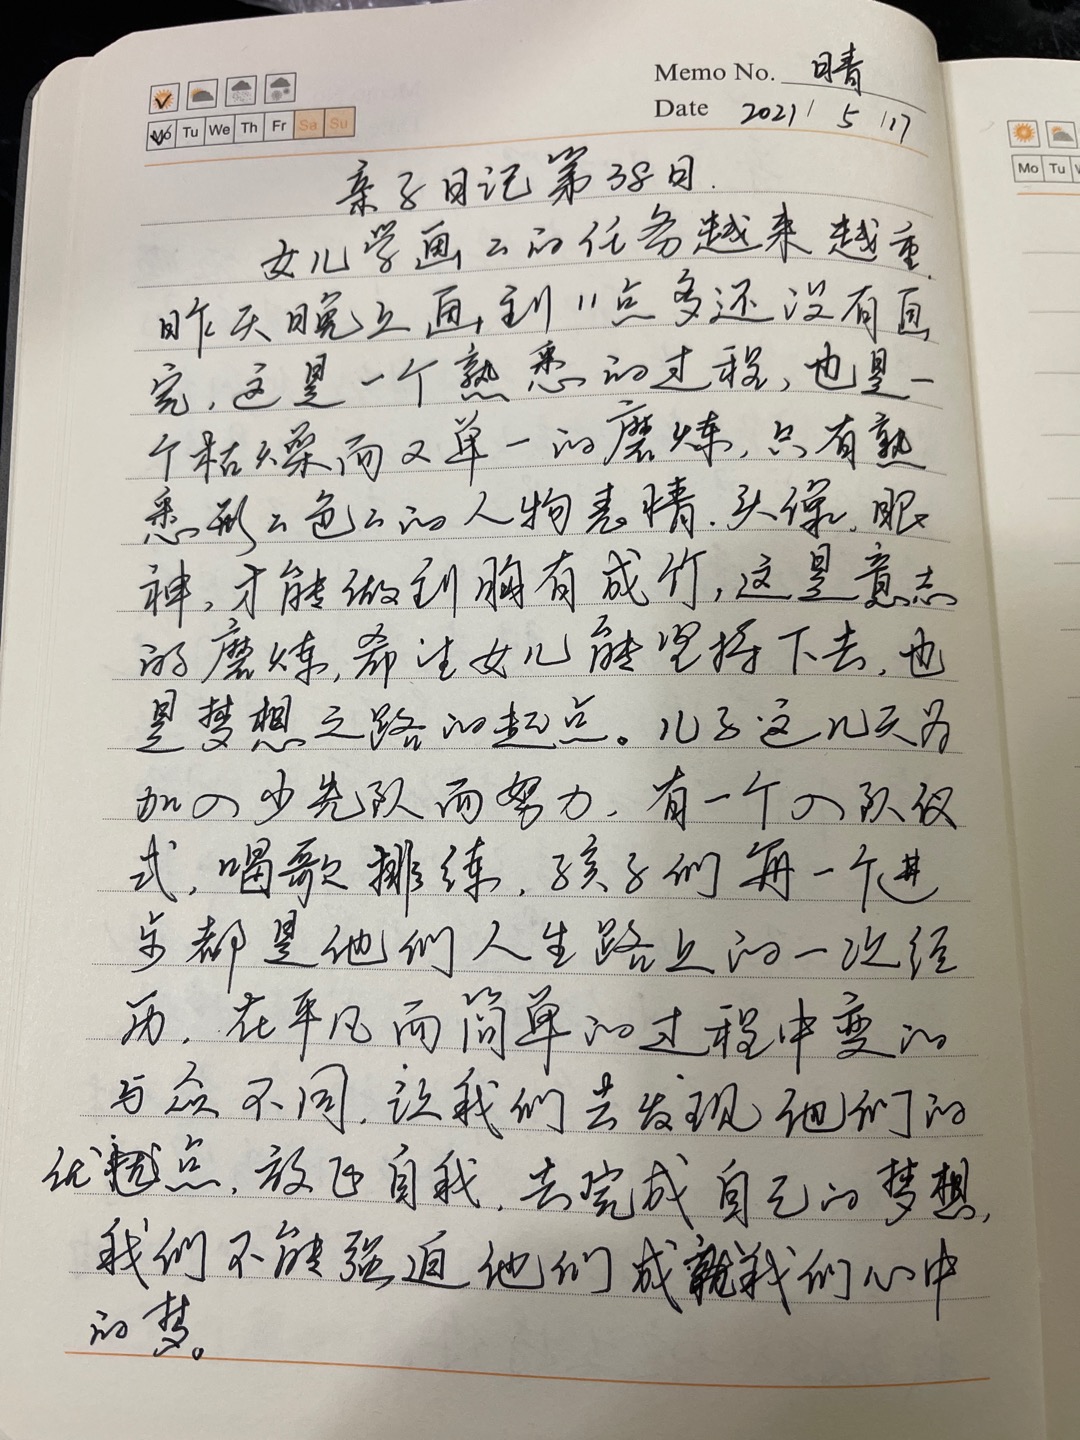 Memo No. 晴
Date 2021/5/17
Mo Tu We Th Fr Sa Su
亲子日记第38日.
女儿学画画的任务越来越重.
昨天晚上画到11点多还没有画
完,这是一个熟悉的过程,也是一
个枯燥而又单一的磨炼,只有熟
悉形形色色的人物表情.头像.眼
神,才能做到胸有成竹,这是意志
的磨炼,希望女儿能坚持下去,也
是梦想之路的起点。儿子这几天为
加入少先队而努力,有一个入队仪
式,唱歌排练,孩子们每一个进
步都是他们人生路上的一次经
历,在平凡而简单的过程中变的
与众不同,让我们去发现他们的
优点,放飞自我,去完成自己的梦想,
我们不能强迫他们成就我们心中
的梦。
Mo Tu